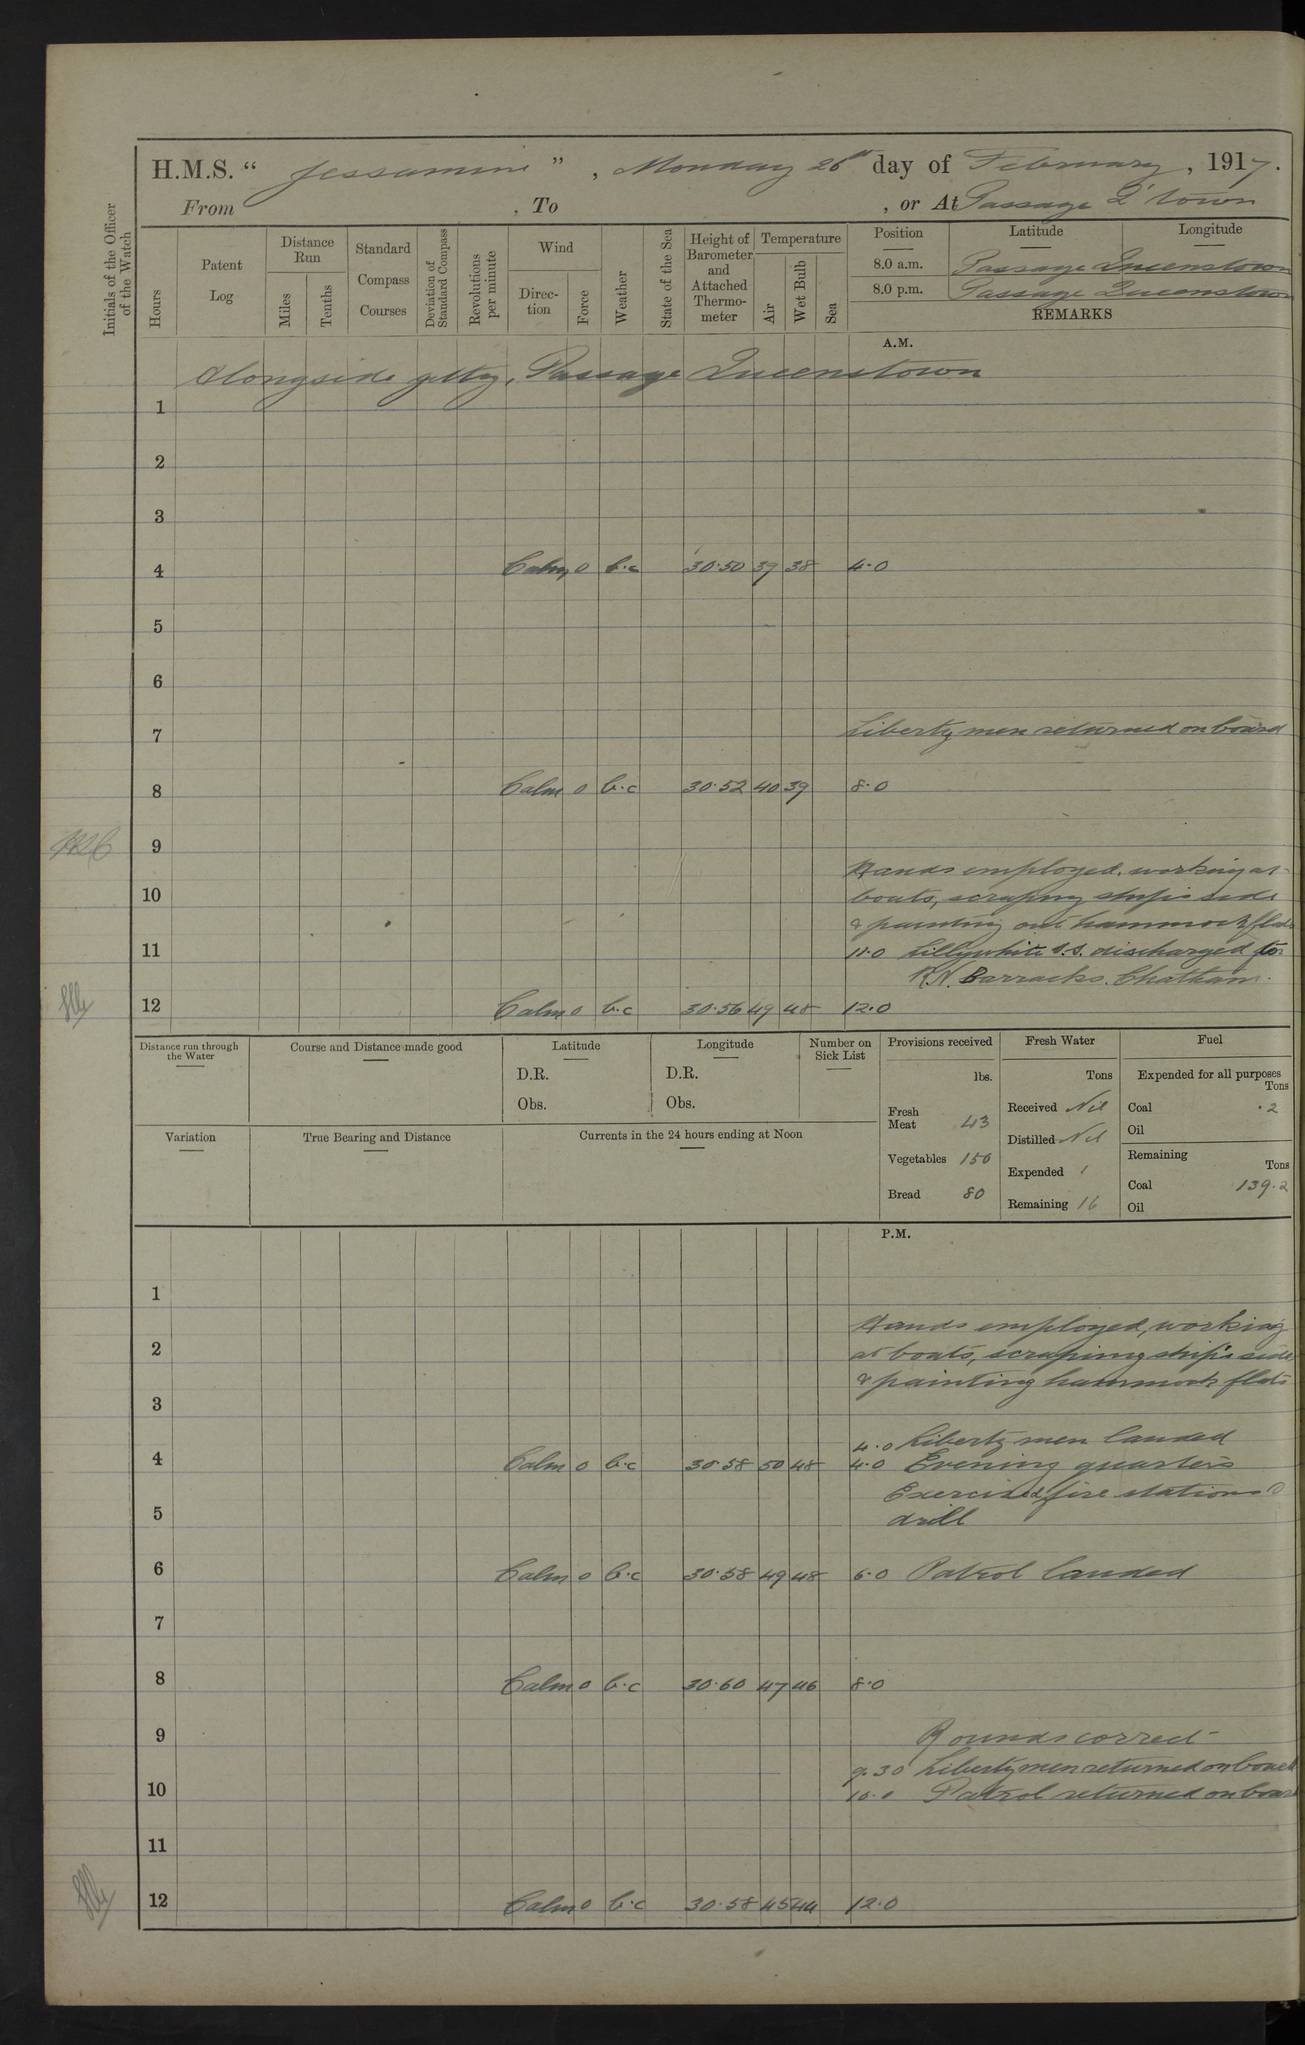 H.M.S. “ Jessamine ” , Monday 26th day of February , 1917.
From , To , or At Passage Q'town
Initials of the Officer of the Watch
Hours
Patent Log
Distance Run
Miles
Tenths
Standard Compass Courses
Deviation of Standard Compass
Revolutions per minute
Wind
Direction
Force
Weather
State of the Sea
Height of Barometer and Attached Thermometer
Temperature
Air
Wet Bulb
Sea
Position Latitude Longitude
8.0 a.m. Passage Queenstown
8.0 p.m. Passage Queenstown
REMARKS
A.M.
Alongside jetty, Passage Queenstown
1
2
3
4 Calm 0 b.c 30.50 39 38 4.0
5
6
7 Liberty men returned on board
8 Calm 0 b.c 30.52 40 39 8.0
9
Hands employed, working at
10 boats, scraping ship's side
& painting out hammock flats
11 11.0 Lillywhite S.S. discharged to
R.N. Barracks. Chatham.
12 Calm 0 b.c 30.56 49 48 12.0
Distance run through the Water
Course and Distance made good
Latitude
D.R.
Obs.
Longitude
D.R.
Obs.
Number on Sick List
Variation
True Bearing and Distance
Currents in the 24 hours ending at Noon
Provisions received
lbs.
Fresh Meat 43
Vegetables 150
Bread 80
Fresh Water
Tons
Received Nil
Distilled Nil
Expended 1
Remaining 16
Fuel
Expended for all purposes
Tons
Coal .2
Oil
Remaining
Tons
Coal 139.2
Oil
P.M.
1
Hands employed, working
2 at boats, scraping ship's side
& painting hammock flats
3
4.0 Liberty men landed
4 Calm 0 b.c 30.58 50 48 4.0 Evening quarters
Exercised fire stations
5 drill
6 Calm 0 b.c 30.58 49 48 6.0 Patrol landed
7
8 Calm 0 b.c 30.60 47 46 8.0
9 Rounds correct
9.30 Liberty men returned on board
10 10.0 Patrol returned on board
11
12 Calm 0 b.c 30.58 45 44 12.0